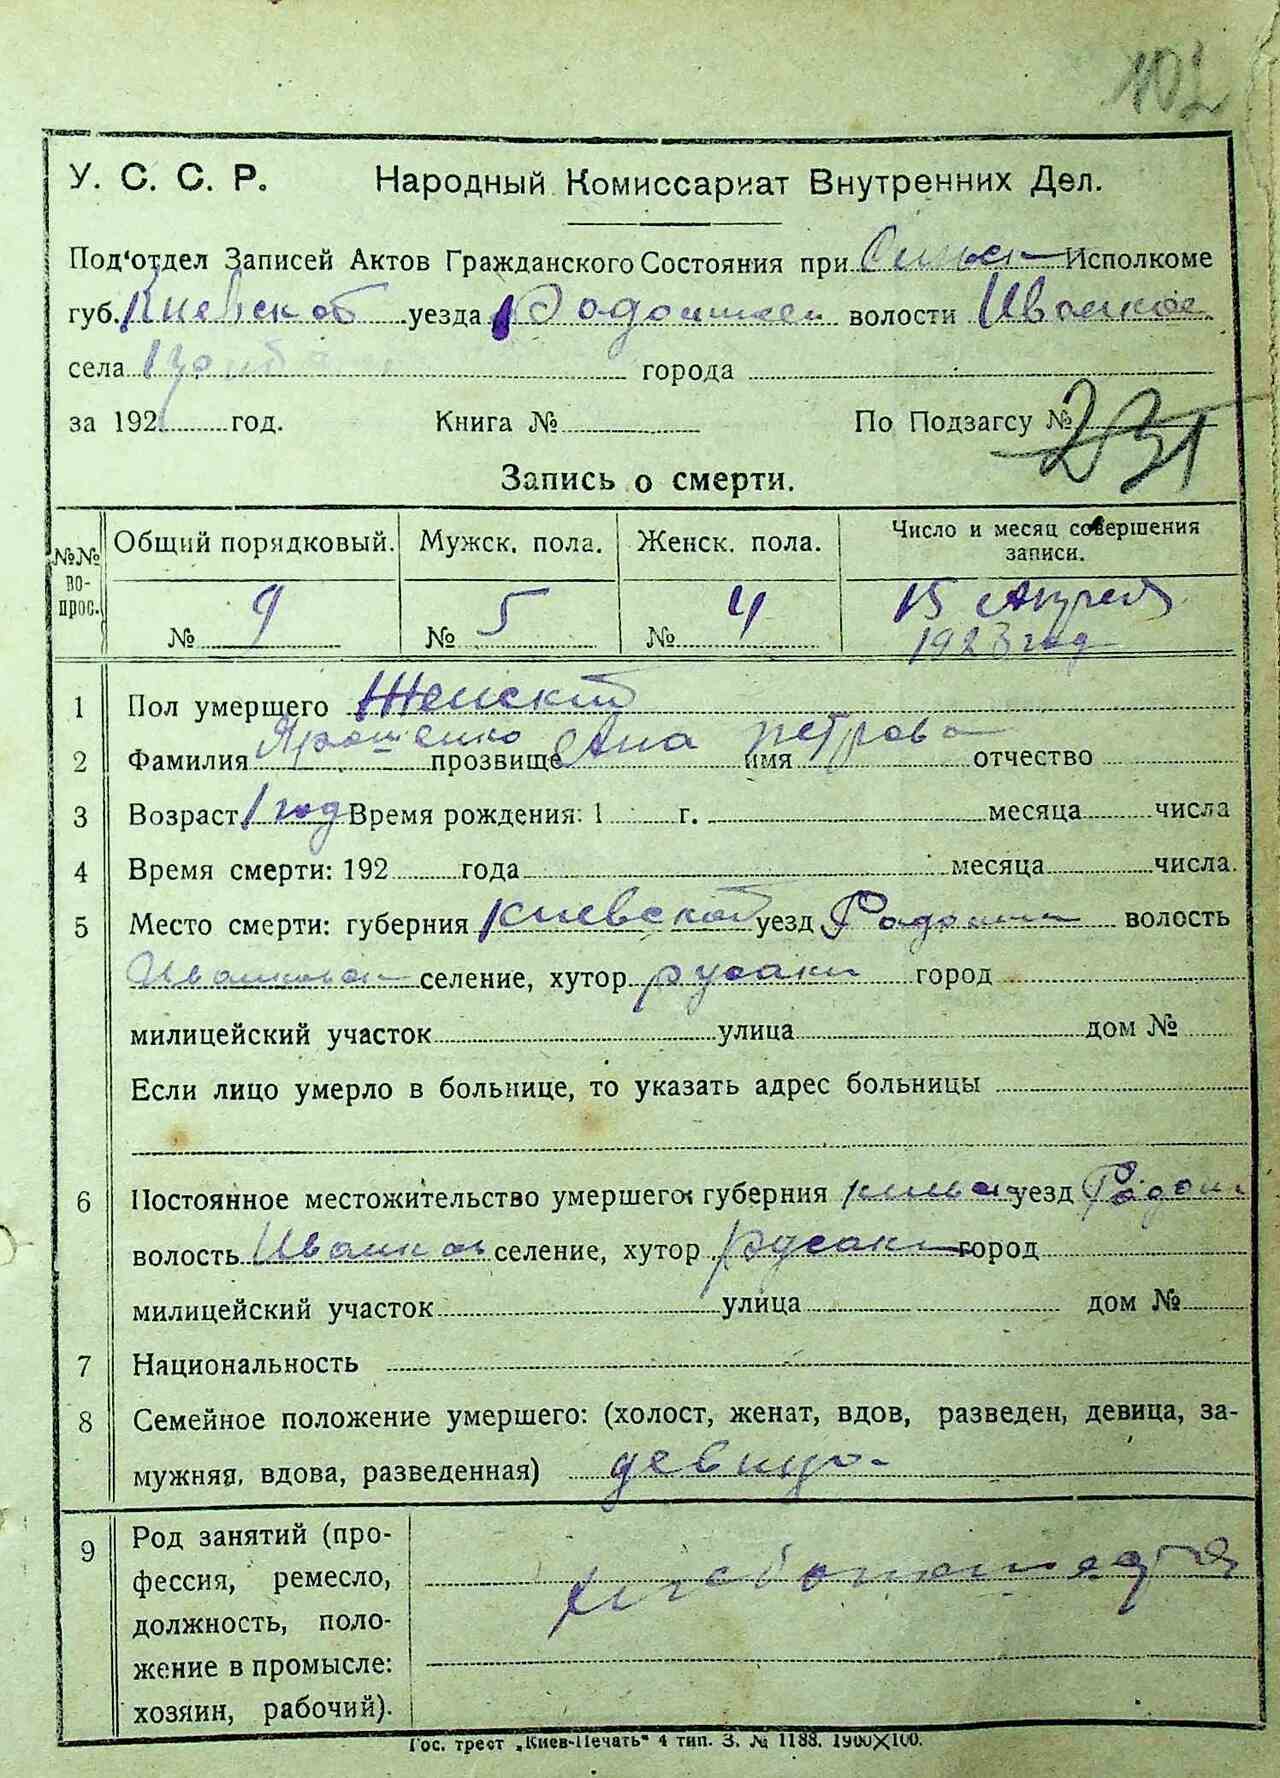 102
У. С. С. Р. Народный Комиссариат Внутренних Дел.
Под'отдел Записей Актов Гражданского Состояния при Исполкоме
губ. Киевской уезда Радомысл волости Иванков
села города
за 192 год. Книга № По Подзагсу № 231
Запись о смерти.
№№ вопрос. Общий порядковый. Мужск. пола. Женск. пола. Число и месяц совершения записи.
№ 9 № 5 № 4 15 Апреля
1923 год
1 Пол умершего Женский
2 Фамилия Ярошенко прозвище Ана имя петрова отчество
3 Возраст 1 год Время рождения: 1 г. месяца числа
4 Время смерти: 192 года месяца числа.
5 Место смерти: губерния Киевской уезд Радомы волость
Иванков селение, хутор русаки город
милицейский участок улица дом №
Если лицо умерло в больнице, то указать адрес больницы
6 Постоянное местожительство умершего: губерния уезд Радом
волость Иванков селение, хутор русаки город
милицейский участок улица дом №
7 Национальность
8 Семейное положение умершего: (холост, женат, вдов, разведен, девица, за-
мужняя, вдова, разведенная) девица
9 Род занятий (про-
фессия, ремесло,
должность, поло-
жение в промысле:
хозяин, рабочий).
хлебопашество
Гос. трест „Киев-Печать" 4 тип. З. № 1188. 1900×100.